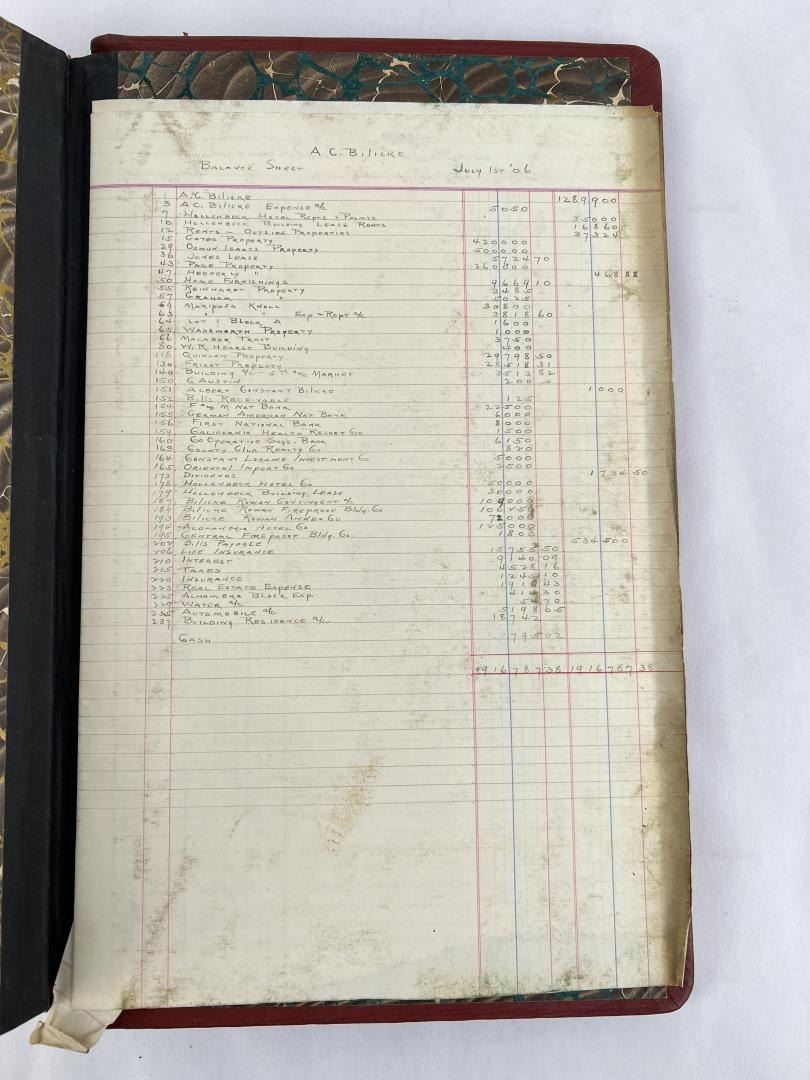 A.C. Bilicke
Balance Sheet July 1st '06.
1 A.C. Bilicke 1289900
3 A.C. Bilicke Expense a/c 5050
7 Hollenbeck Hotel Repts & Paymts 35000
10 Hollenbeck Building Lease Rents 16860
12 Rents - Outside Properties 37324
15 Gates Property 420000
29 Osmun Isaacs Property 500000
36 Jones Lease 5724 70
43 Page Property 260000
47 Hedderly " 468 88
50 Home Furnishings 9669 10
55 Reinhardt Property 3485
57 Graham " 5025
59 Mariposa Knoll 30800
63 " " Exp & Rept a/c 3818 60
64 Lot 1 Block A 1600
65 Wadsworth Property 1000
66 Malabor Tract 3750
80 W.R. Hearst Building 400
118 Quinlan Property 29798 50
130 Friost Property 28518 31
140 Building a/c - 5th and Market 3513 82
150 C. Austin 200
151 Albert Constant Bilicke 1000
152 Bills Receivable 125
154 F and M Nat Bank 22500
155 German American Nat Bank 6000
156 First National Bank 8000
159 California Health Resort Co 1500
160 Co Operative Svgs. Bank 6150
163 County Club Realty Co 820
164 Constant Loraine Investment Co 5000
165 Oriental Import Co 2500
173 Dividends 1734 50
178 Hollenbeck Hotel Co 50000
179 Hollenbeck Building Lease 30000
187 Bilicke Rowan Contingent a/c 109000
189 Bilicke Rowan Fireproof Bldg. Co 106250
193 Bilicke Rowan Annex Co 72000
194 Alexandria Hotel Co 125000
195 Central Fireproof Bldg. Co 1800
202 Bills Payable 534500
206 Life Insurance 15755 50
210 Interest 9140 09
215 Taxes 4528 16
220 Insurance 1245 10
223 Real Estate Expense 191 43
225 Alhambra Block Exp. 41 30
229 Water a/c 54 70
235 Automobile a/c 5198 05
237 Building Residence a/c 18742
Cash 795 02
1916787 38 1916787 38